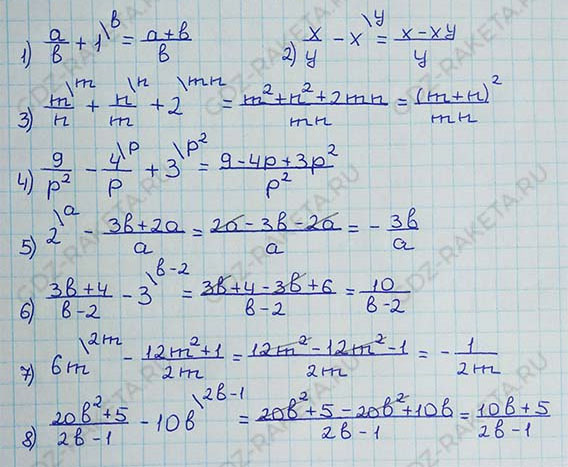 1) a/в \ + 1 \в = (a+в)/в   2) x/y - x \y = (x-xy)/y
3) m/n \m + n/m \n + 2 \mn = (m²+n²+2mn)/mn = (m+n)²/mn
4) 9/p² - 4/p \p + 3 \p² = (9-4p+3p²)/p²
5) 2 \a - (3в+2a)/a = (2a-3в-2a)/a = -3в/a
6) (3в+4)/(в-2) - 3 \в-2 = (3в+4-3в+6)/(в-2) = 10/(в-2)
7) 6m \2m - (12m²+1)/2m = (12m²-12m²-1)/2m = -1/2m
8) (20в²+5)/(2в-1) - 10в \2в-1 = (20в²+5-20в²+10в)/(2в-1) = (10в+5)/(2в-1)
GDZ-RAKETA.RU